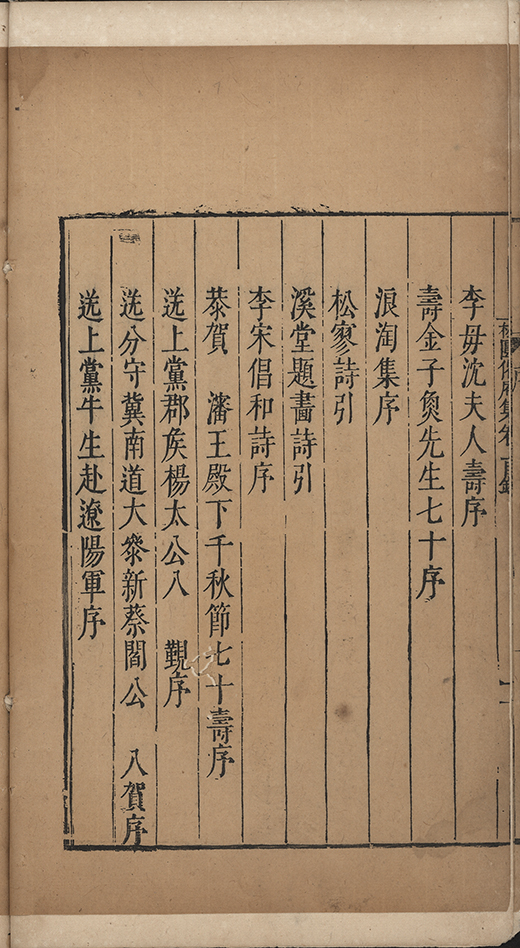 李母沈夫人壽序
壽金子魚先生七十序
浪淘集序
松寥詩引
溪堂題畫詩引
李宋倡和詩序
恭賀　瀋王殿下千秋節七十壽序
送上黨郡矦楊太公八　覲序
送分守冀南道大叅新蔡閻公　入賀序
送上黨牛生赴遼陽軍序